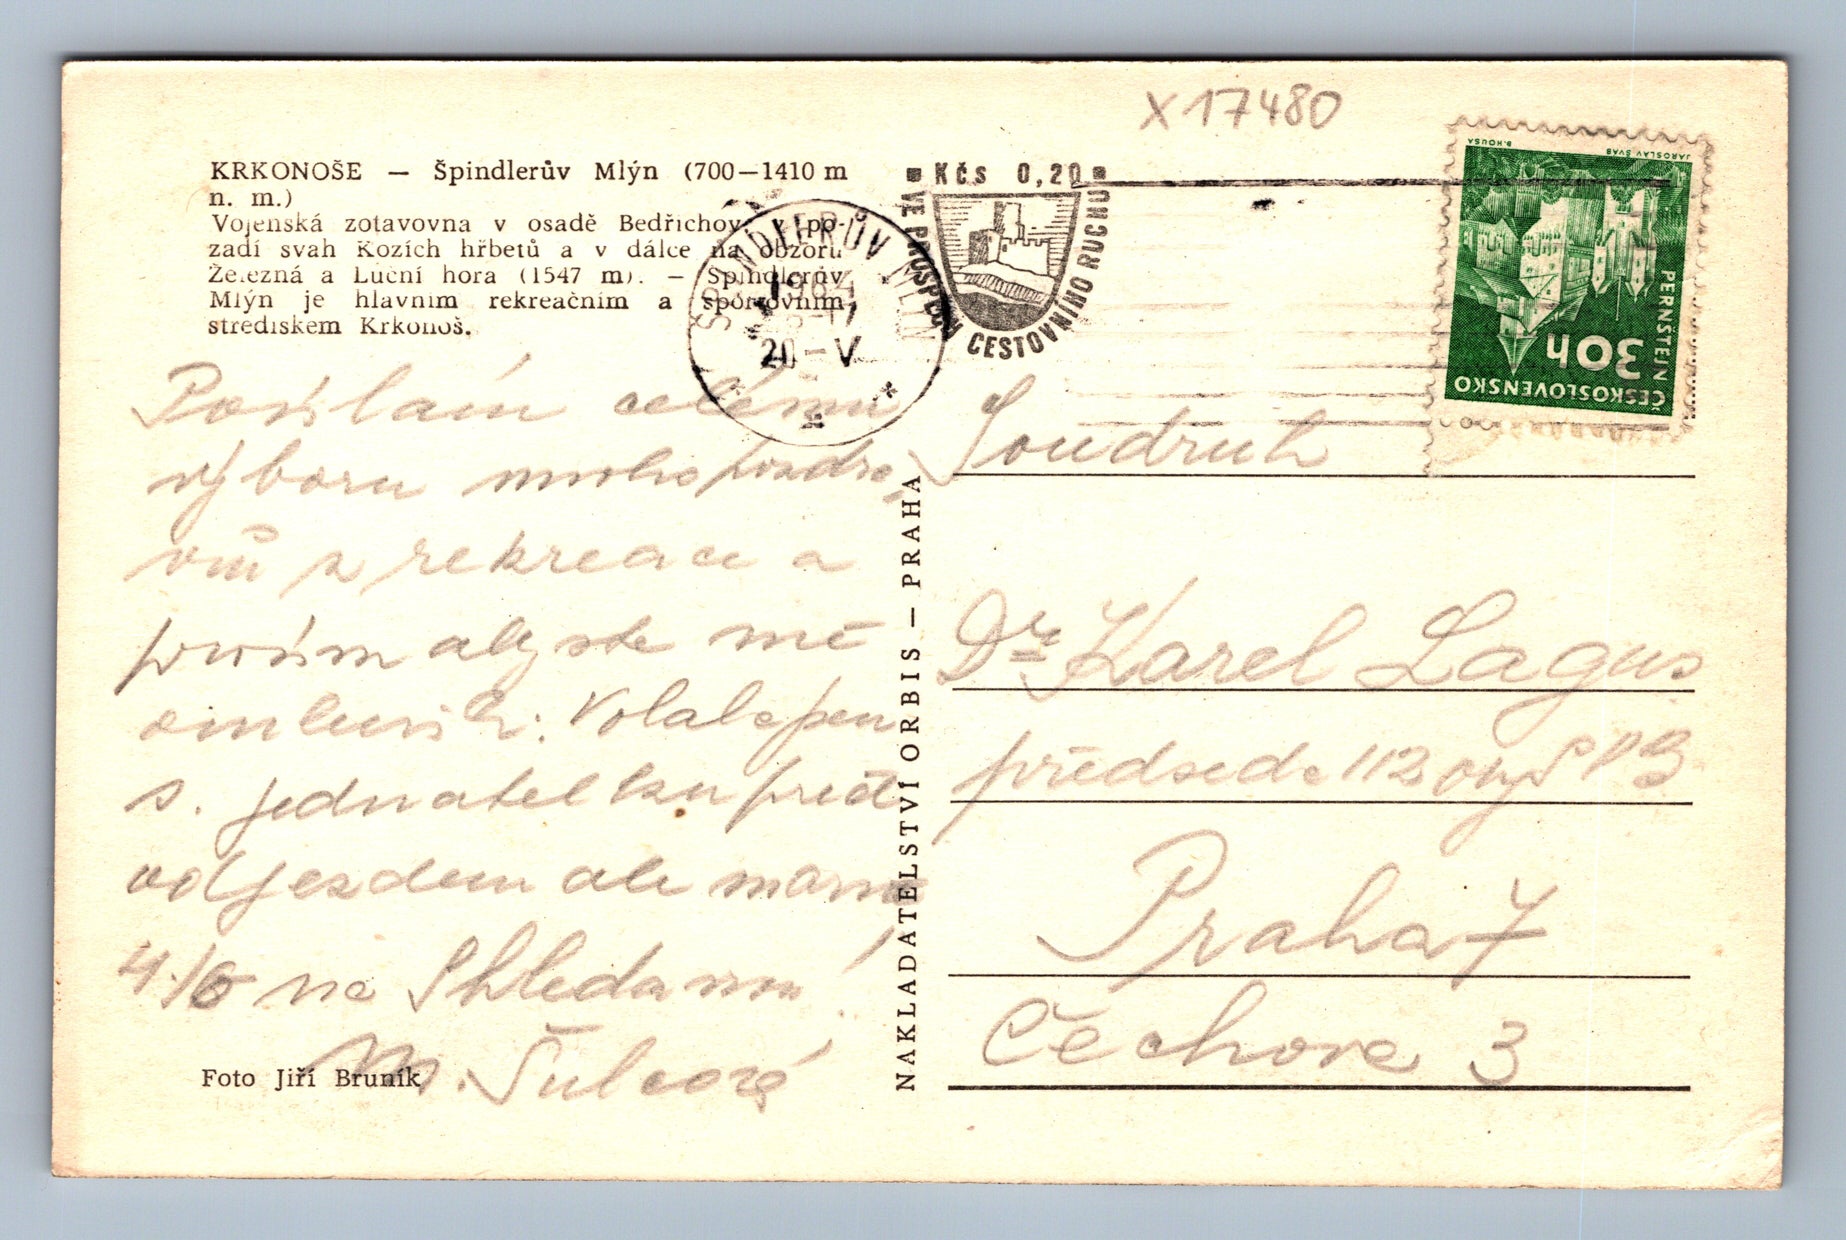 X 17480
KRKONOŠE — Špindlerův Mlýn (700—1410 m
n. m.)
Vojenská zotavovna v osadě Bedřichov, v po-
zadí svah Kozích hřbetů a v dálce na obzoru
Železná a Luční hora (1547 m). — Špindlerův
Mlýn je hlavním rekreačním a sportovním
střediskem Krkonoš.
ŠPINDLERŮV MLÝN
1964
20-V
Kčs 0,20
VE PROSPĚCH CESTOVNÍHO RUCHU
JAROSLAV ŠVÁB
B. HOUSA
PERNŠTEJN
30h
ČESKOSLOVENSKO
Posílám celému
výboru mnoho pozdra-
vů z rekreace a
prosím abyste mě
omluvili. Volala jsem
s. jednatelku před
odjezdem ale marně
4./6 na Shledanou!
M. Šulcová
Foto Jiří Bruník
NAKLADATELSTVÍ ORBIS — PRAHA
Soudruh
Dr. Karel Lagus
předseda 112
Praha 7
Čechova 3